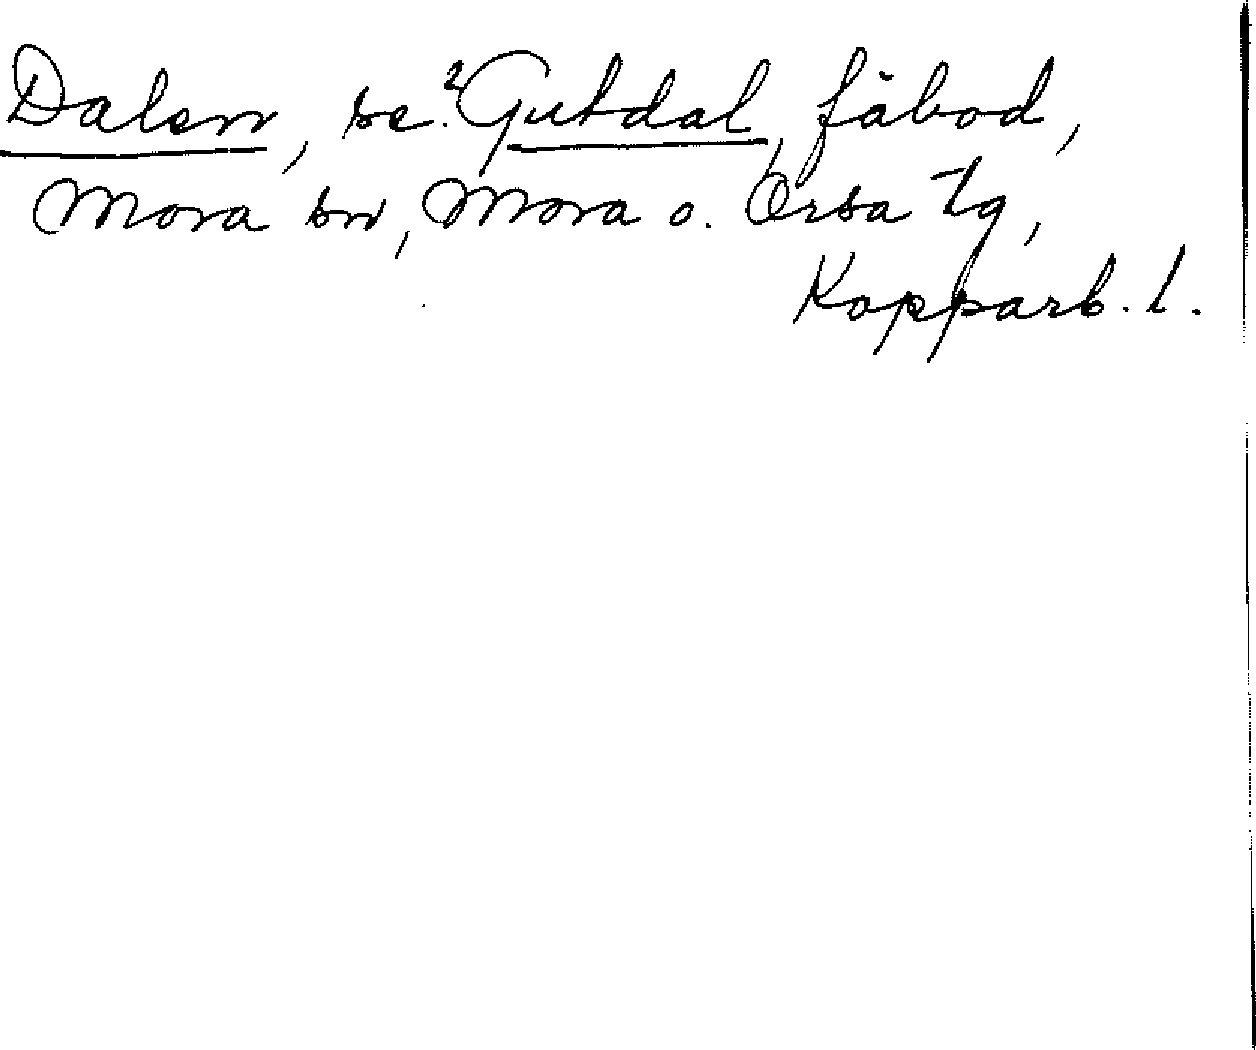 Dalen, se ²Gutdal, fäbod,
Mora sn, Mora o. Orsa tg,
Kopparb. l.